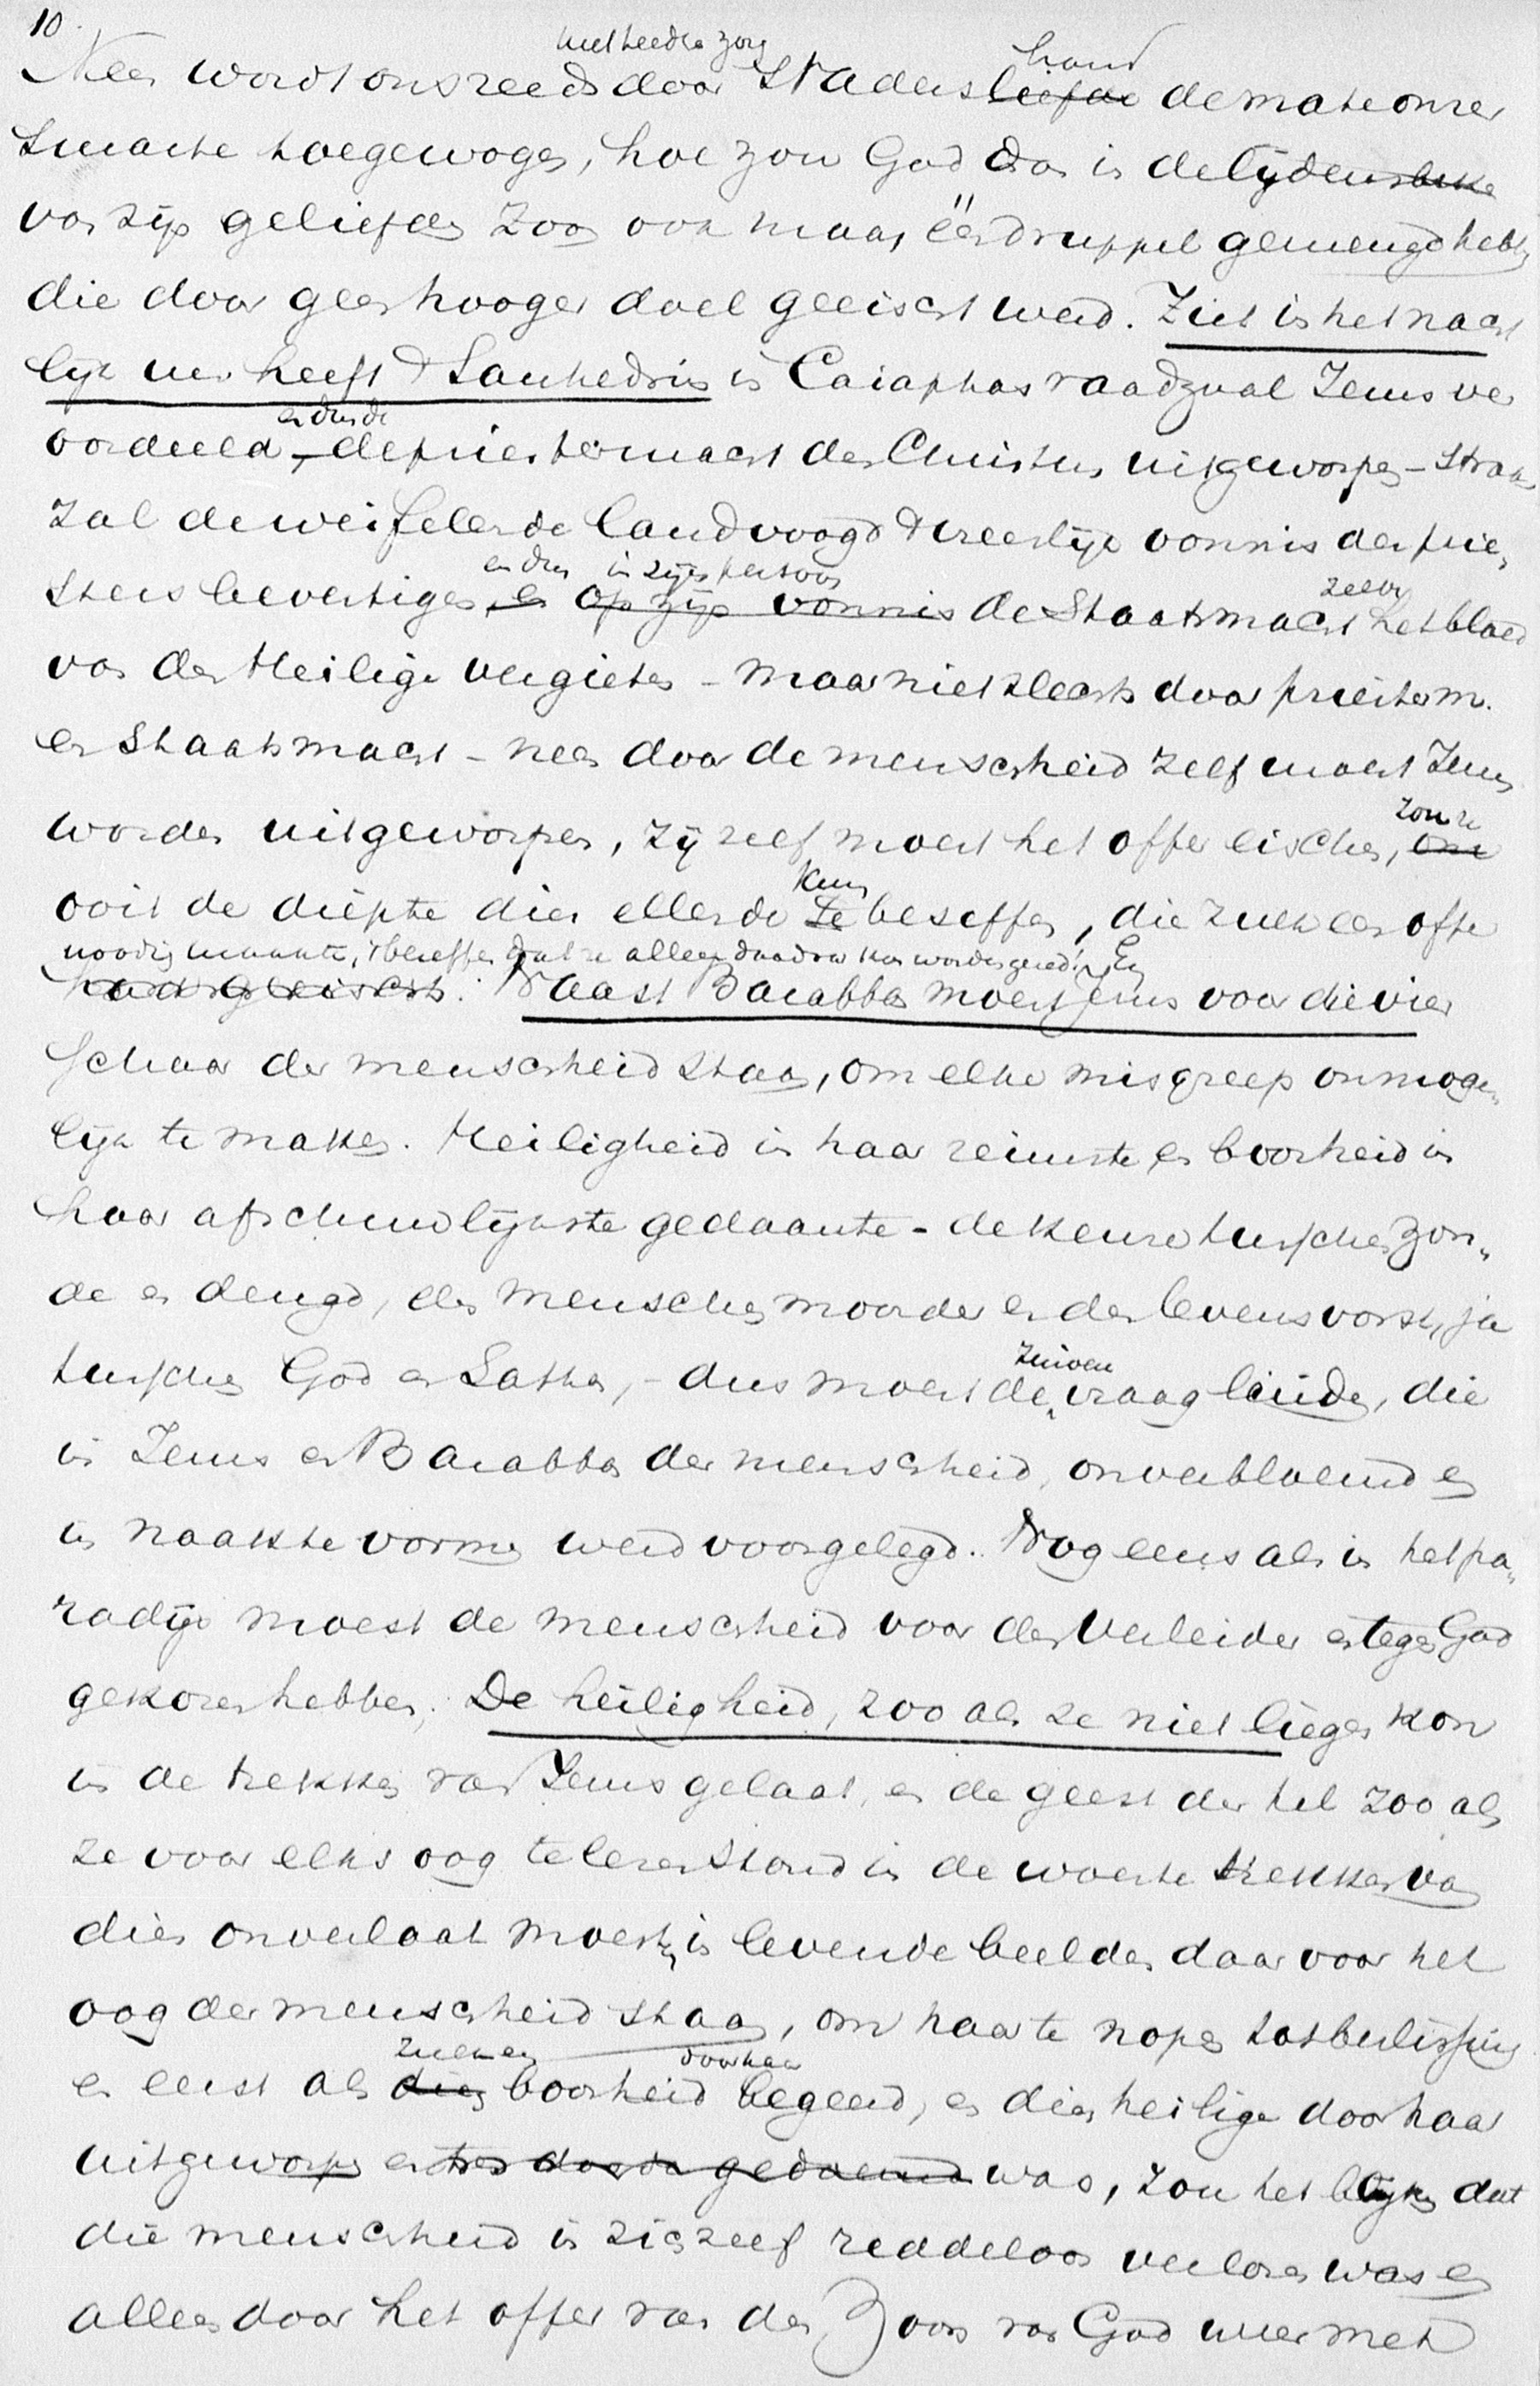 10.
met teedre zorg hand
Neen wordt ons reeds door 's Vaders liefde de mate onzer
smarte toegewogen, hoe zou God dan in de lijdensbeke
van zijn geliefden Zoon ook maar één druppel gemengd hebben
die door geen hooger doel geeischt werd. Ziet in het nacht
lijk uur heeft 't Sanhedrin in Caiaphas raadzaal Jezus ver
en dus de
oordeeld, – de priestermacht den Christus uitgeworpen – straks
zal de weifelende landvoogd 't vreeslijk vonnis der prie„
en dus in zijn persoon zelve
sters bevestigen, en op zijn vonnis de Staatsmacht het bloed
van den Heilige vergieten – maar niet slechts door priesterm.
en staatsmacht – neen door de menschheid zelf moest Jezus
worden uitgeworpen, zij zelf moest het offer eischen, om
zou ze
kunnen
ooit de diepte dier ellende te beseffen, die zulk een offer
noodig maakte, 't beseffen dat ze alleen daardoor kon worden gered. En
had geeischt. Naast Barabbas moest Jezus voor die vier
schaar der menschheid staan, om elke misgreep onmoge„
lijk te maken. Heiligheid in haar reinste en boosheid in
haar afschuwlijkste gedaante – de keuze tusschen zon„
de en deugd, den menschenmoorder en den levensvorst, ja
zuivere
tusschen God en Sathan, – dus moest de vraag luiden, die
in Jezus en Barabbas der menschheid, onverbloemd en
in naakte vormen werd voorgelegd. Nog eens als in het pa„
radijs moest de menschheid voor den Verleider en tegen God
gekozen hebben. De heiligheid, zoo als ze niet liegen kon
in de trekken van Jezus gelaat, en de geest der hel zoo als
ze voor elks oog te lezen stond in de woeste trekken van
dien onverlaat moesten in levende beelden daar voor het
oog der menschheid staan, om haar te nopen tot beslissing
zulk een door haar
en eerst als die boosheid begeerd, en die heilige door haar
uitgeworpen en ten doode gedoemd was, zou het blijken dat
die menschheid in zichzelf reddeloos verloren was en
alleen door het offer van den Zoon van God weer met